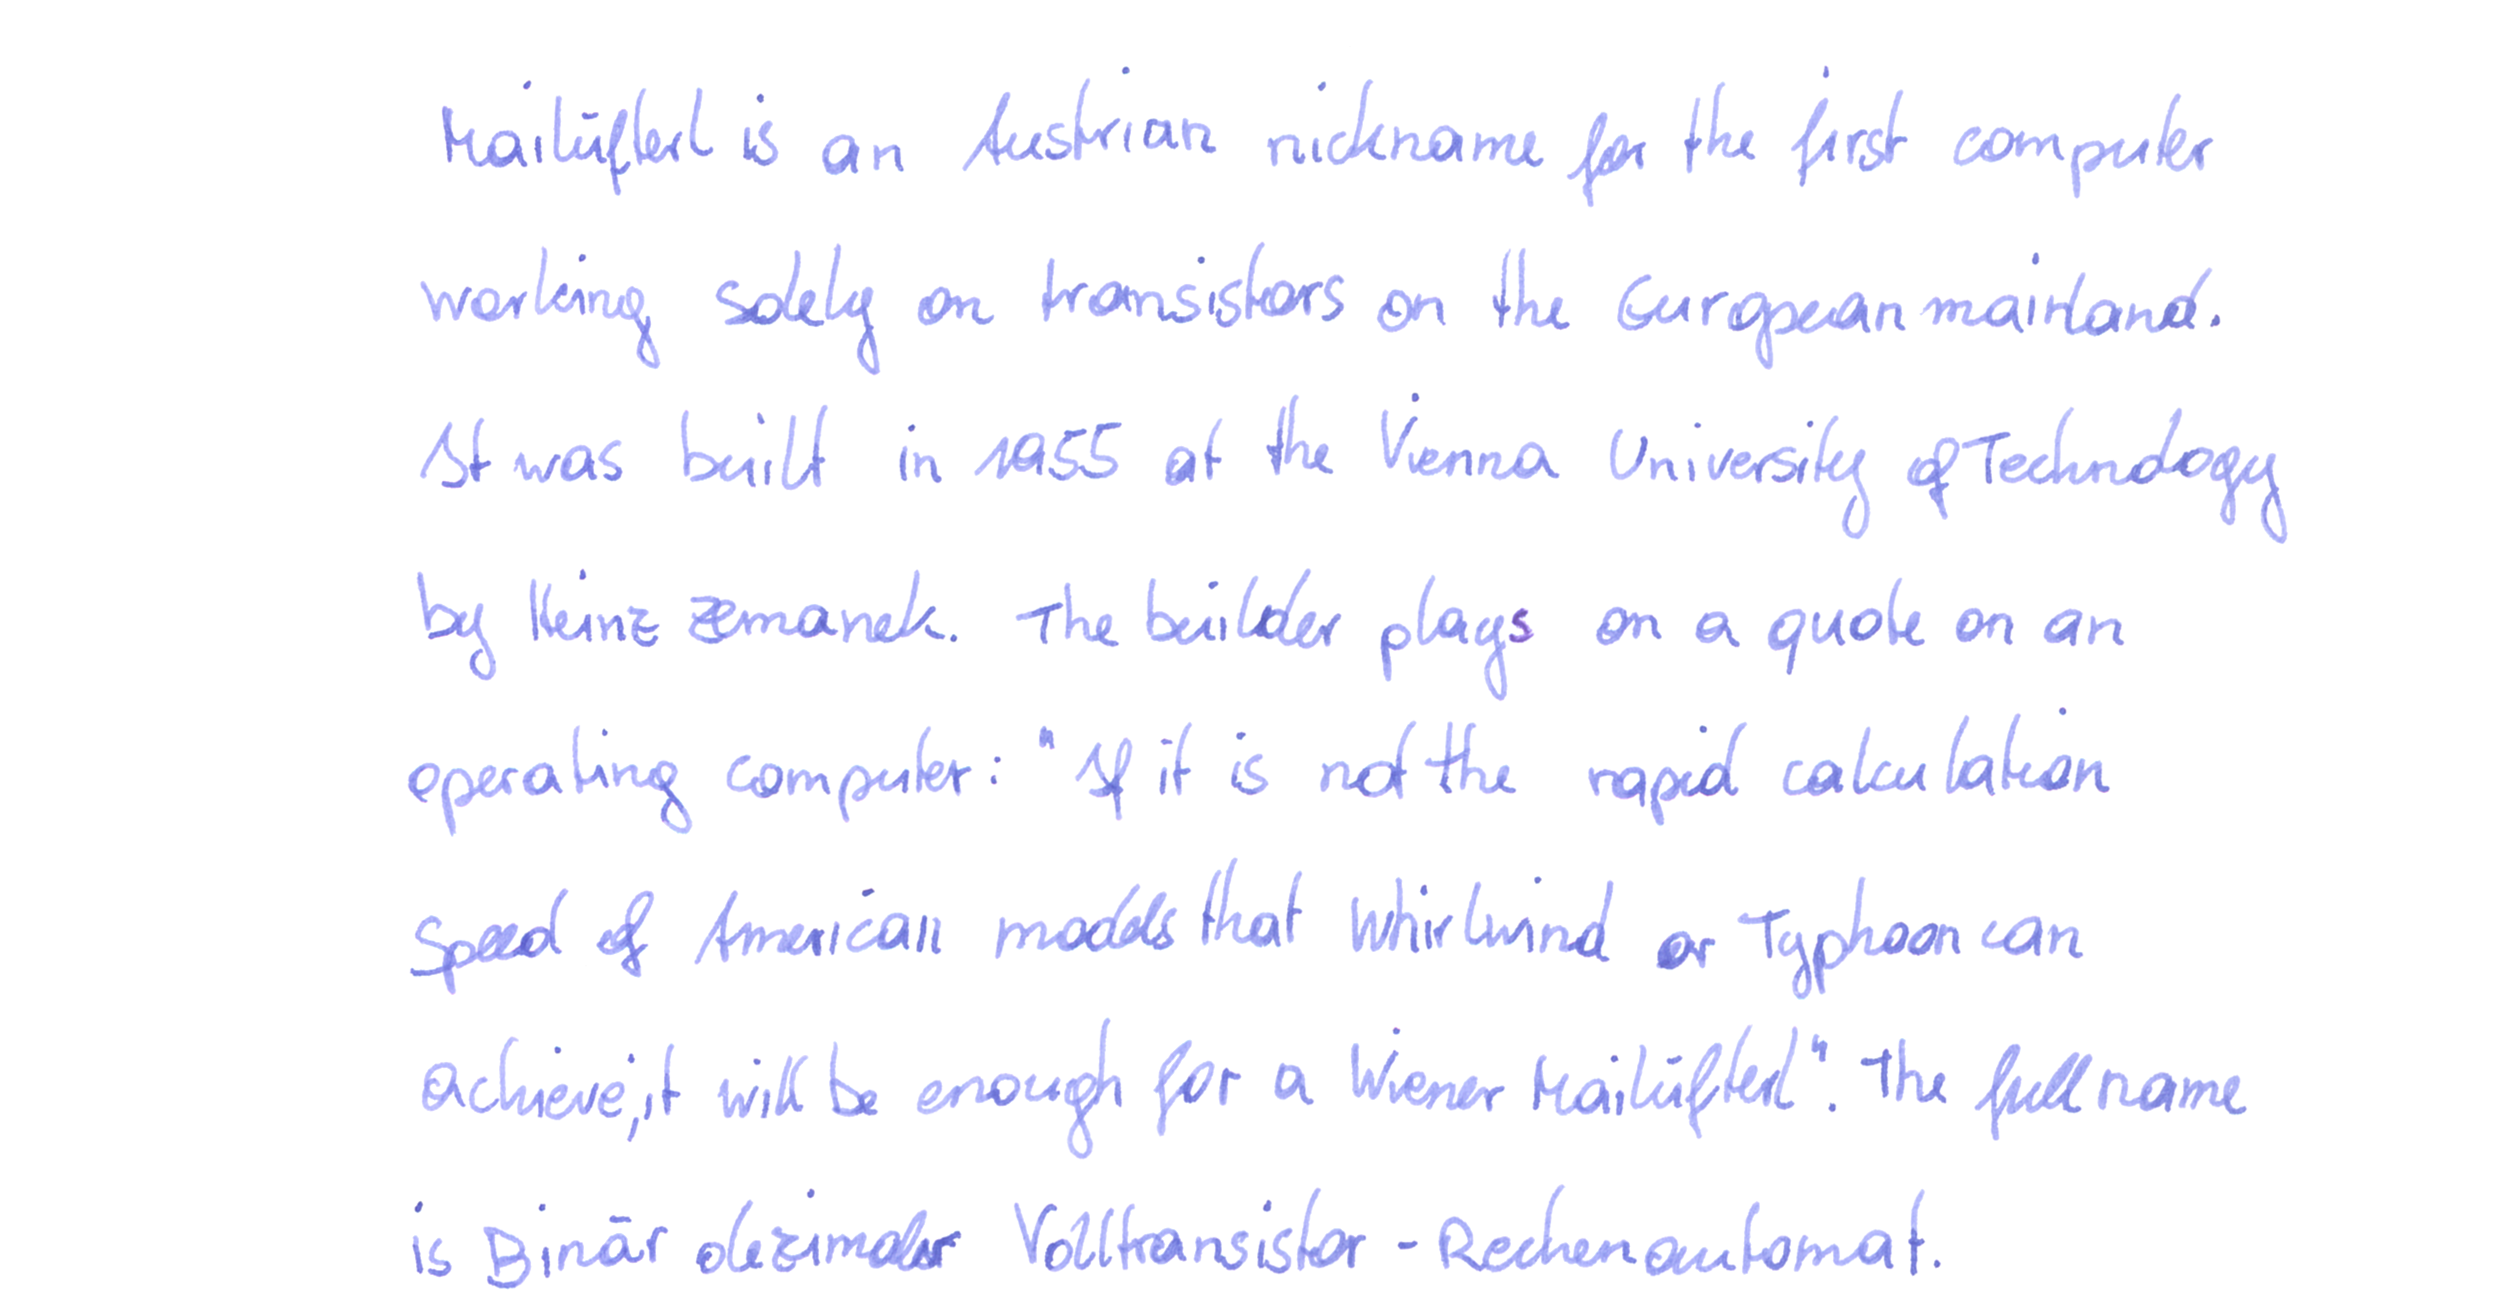 Mailüfterl is an Austrian nickname for the first computer
working solely on transistors on the European mainland.
It was built in 1955 at the Vienna University of Technology
by Heinz Zemanek. The builder plays on a quote on an
operating computer: "If it is not the rapid calculation
speed of American models that Whirlwind or Typhoon can
achieve, it will be enough for a Wiener Mailüfterl". The full name
is Binär dezimaler Volltransistor-Rechenautomat.